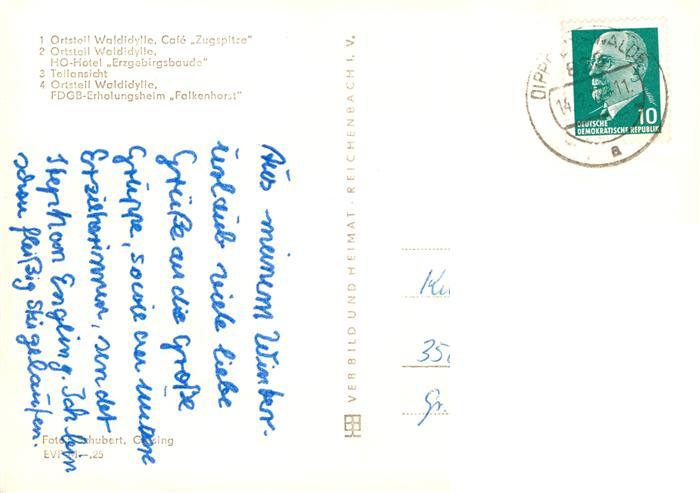 1 Ortsteil Waldidylle, Café „Zugspitze"
2 Ortsteil Waldidylle,
HO-Hotel „Erzgebirgsbaude"
3 Teilansicht
4 Ortsteil Waldidylle,
FDGB-Erholungsheim „Falkenhorst"
Aus meinem Winter-
urlaub viele liebe
Grüße an die große
Gruppe, sowie an unsere
Erzieherinnen, sendet
Stephan Engling. Ich bin
schon fleißig Ski gelaufen.
Foto: Schubert, Geising
EVP M —,25
VERBILD UND HEIMAT · REICHENBACH I. V.
10
DEUTSCHE
DEMOKRATISCHE REPUBLIK
a
35
Gr.